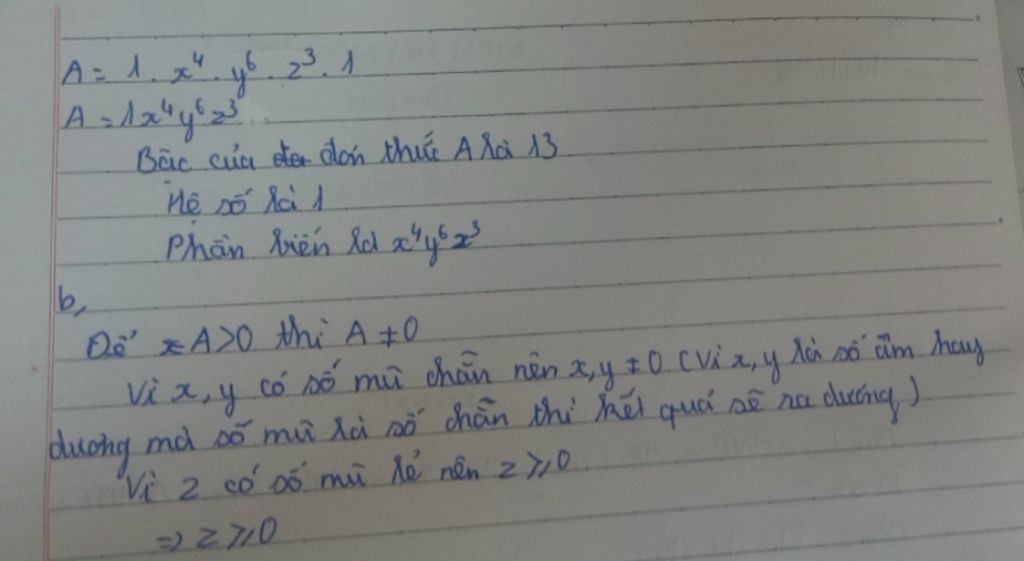 A = 1 . x⁴ . y⁶ . z³ . 1
A = 1x⁴y⁶z³
Bậc của đơn thức A là 13
Hệ số là 1
Phần biến là x⁴y⁶z³
b,
Để A>0 thì A ≠ 0
Vì x, y có số mũ chẵn nên x, y ≠ 0 (Vì x, y là số âm hay
dương mà số mũ là số chẵn thì kết quả sẽ ra dương)
Vì z có số mũ lẻ nên z ⩾ 0
=> z ⩾ 0